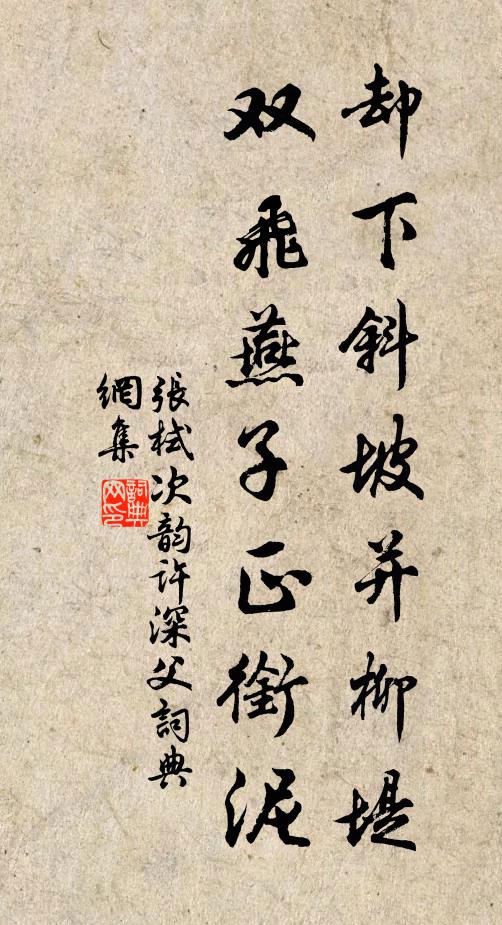 却下斜坡并柳堤
双飛燕子正銜泥
張栻次韵许深父詞典
網集
詞典
网印